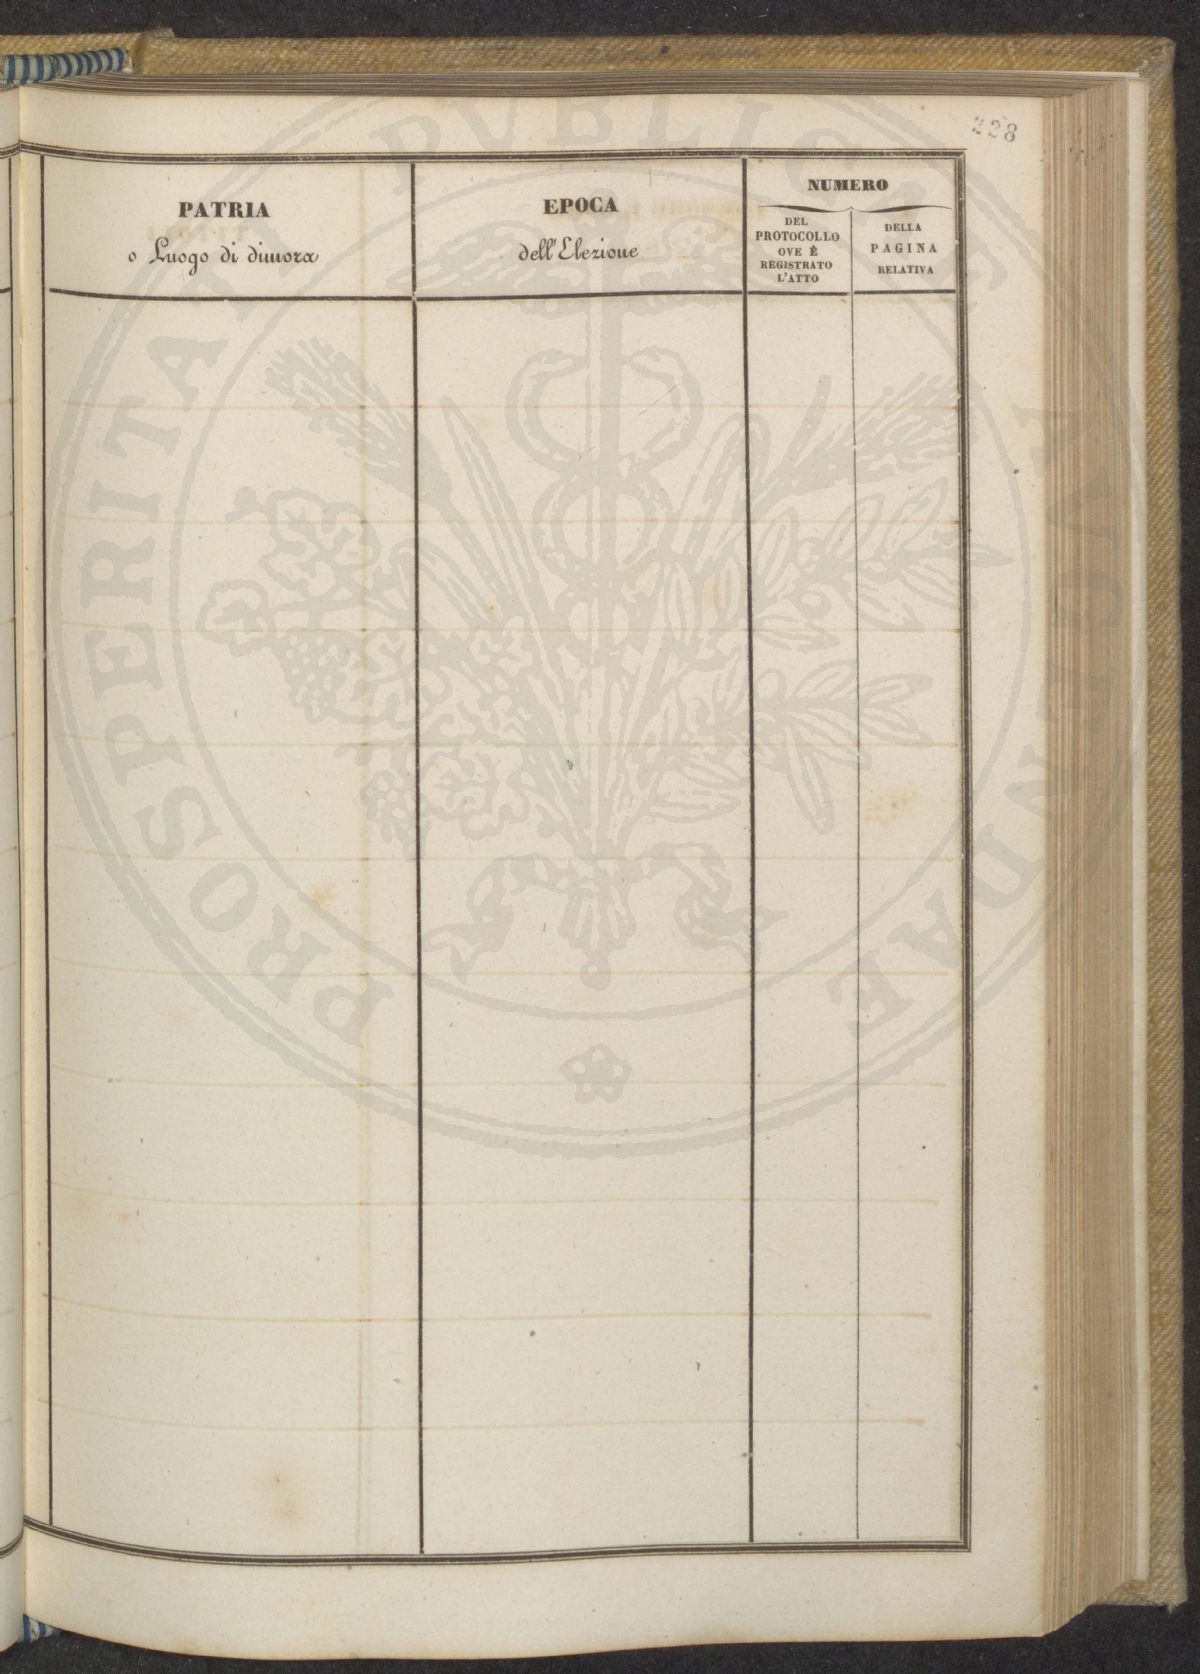 228
PATRIA
o Luogo di dimora
EPOCA
dell'Elezione
NUMERO
DEL
PROTOCOLLO
OVE È
REGISTRATO
L'ATTO
DELLA
PAGINA
RELATIVA
PROSPERITATI PVBLICAE AVGENDAE